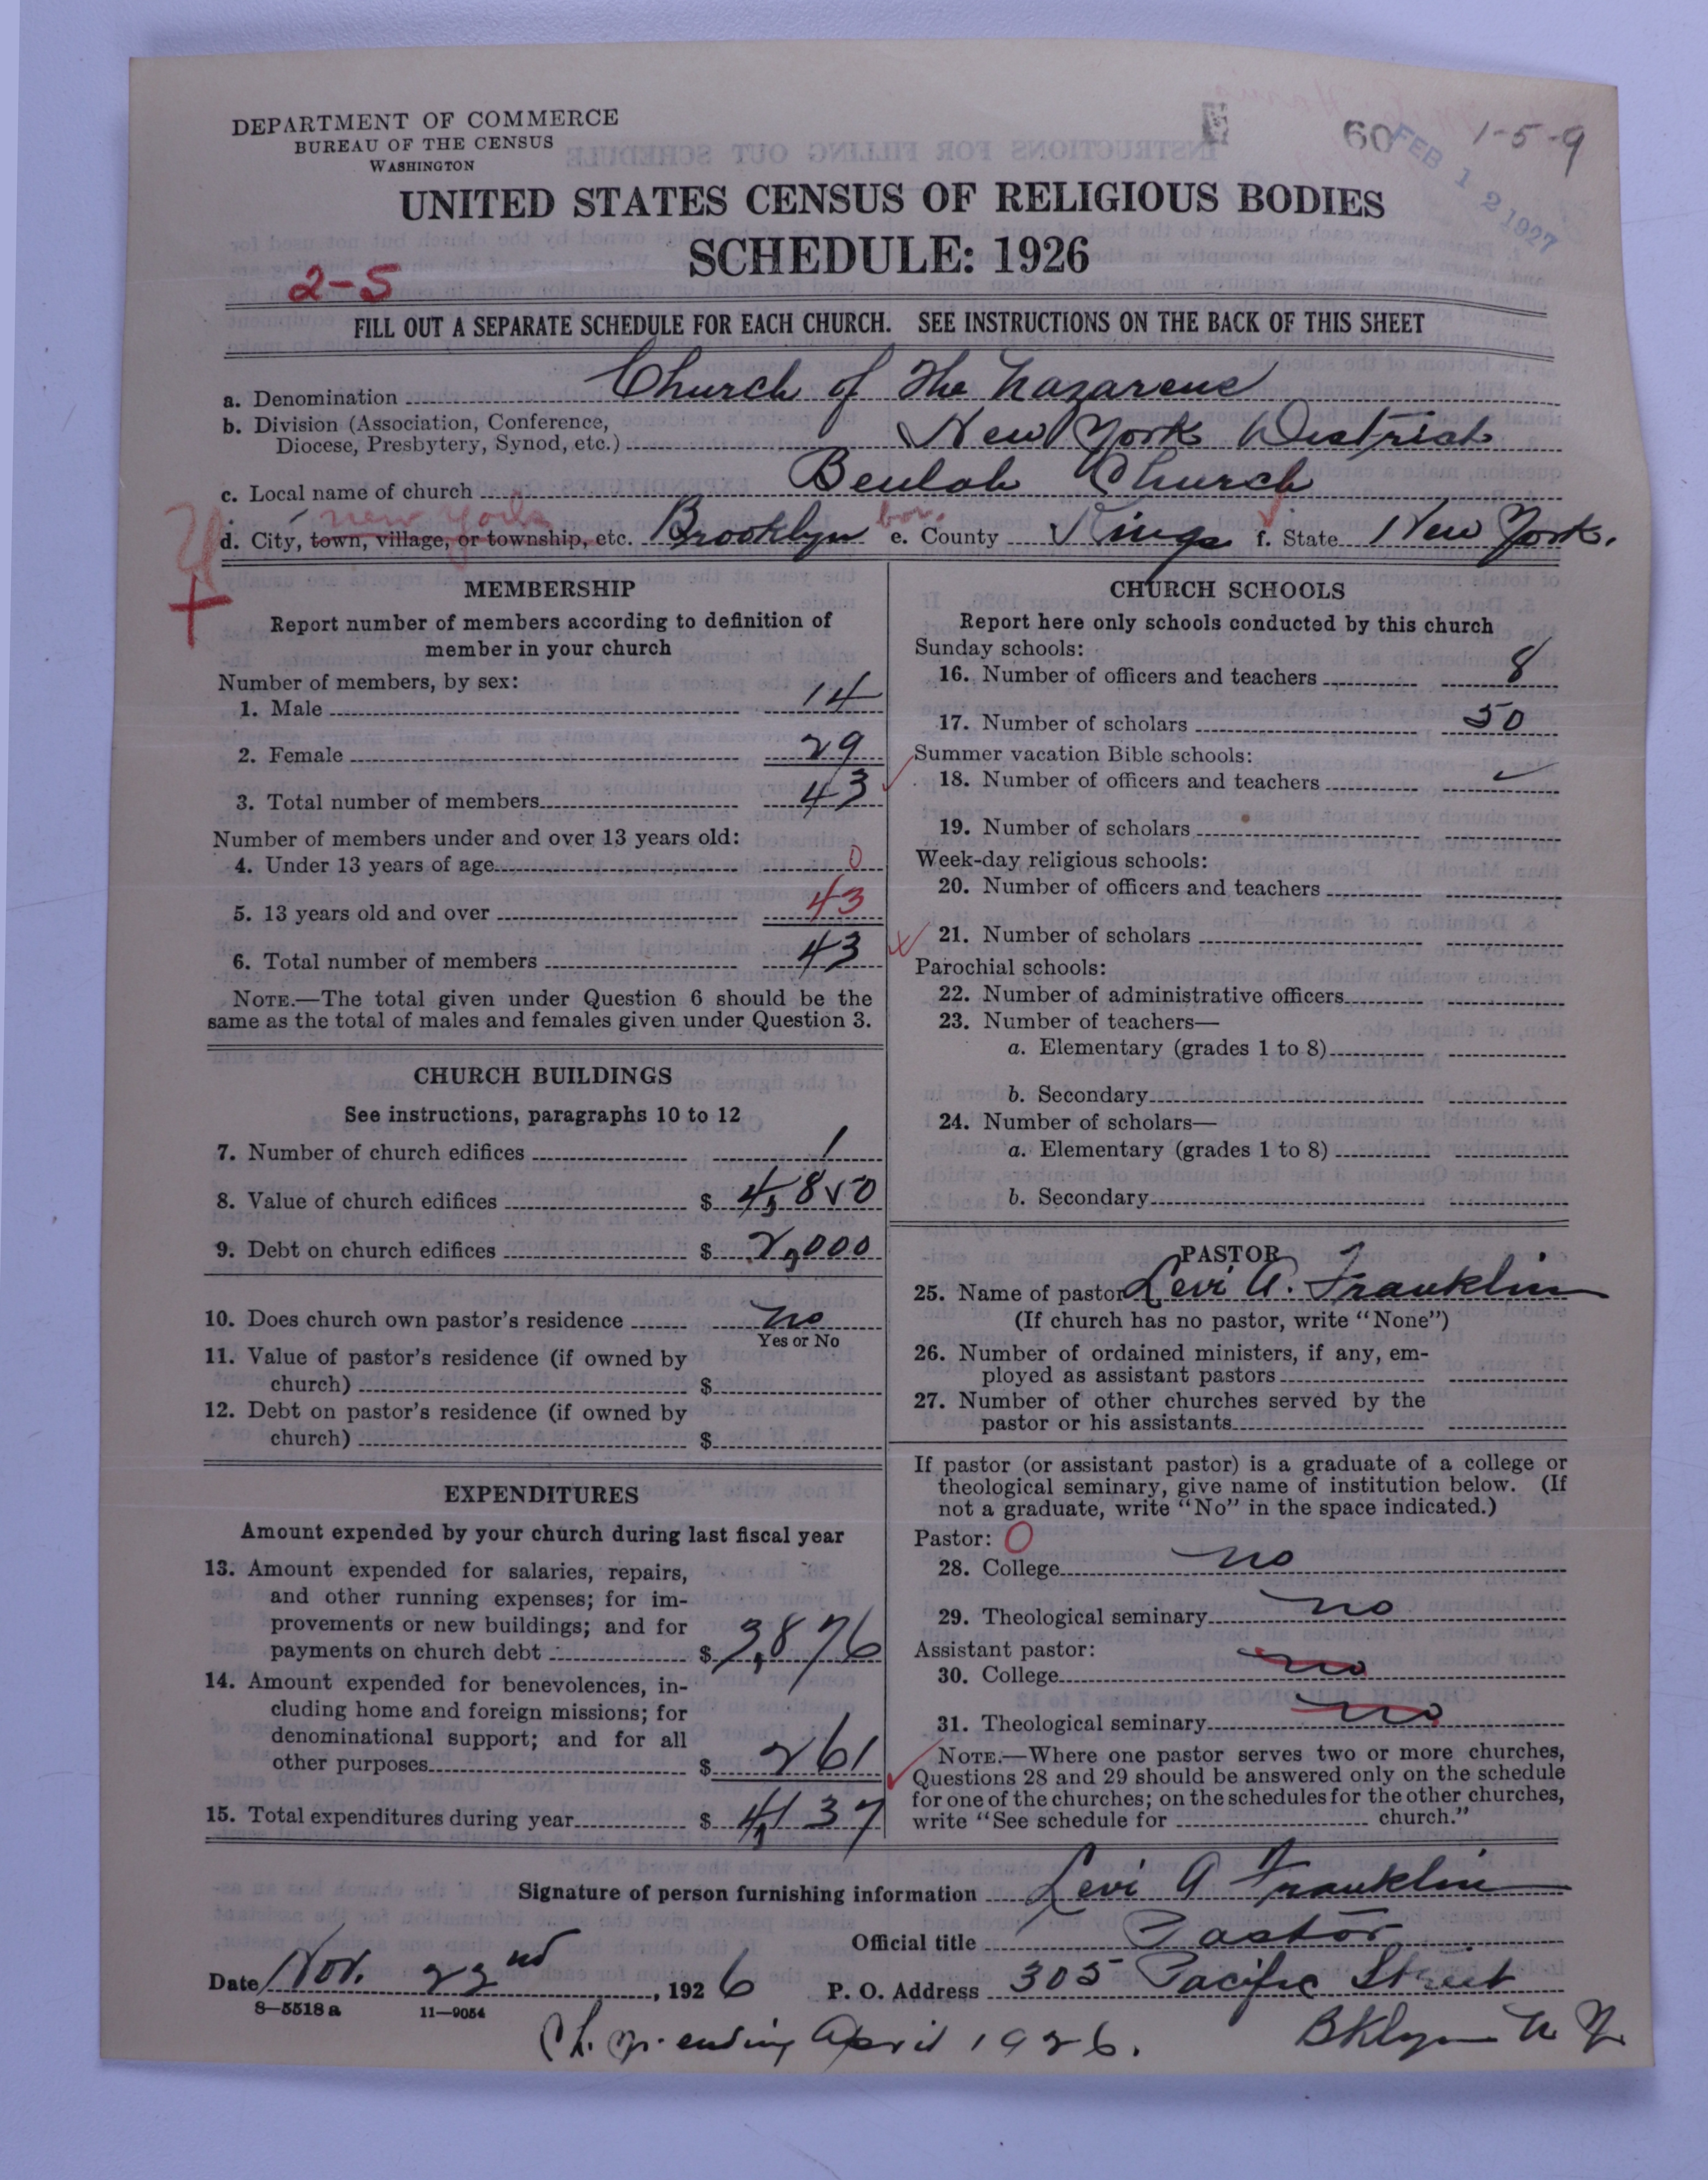 DEPARTMENT OF COMMERCE
BUREAU OF THE CENSUS
WASHINGTON
60
FEB 12 1927
1-5-9
UNITED STATES CENSUS OF RELIGIOUS BODIES
SCHEDULE: 1926
2-5
FILL OUT A SEPARATE SCHEDULE FOR EACH CHURCH. SEE INSTRUCTIONS ON THE BACK OF THIS SHEET
a. Denomination Church of the Nazarene
b. Division (Association, Conference,
Diocese, Presbytery, Synod, etc.) New York District
c. Local name of church Beulah Church
new york bor.
d. City, town, village, or township, etc. Brooklyn e. County Kings f. State New York.
MEMBERSHIP
Report number of members according to definition of
member in your church
Number of members, by sex:
1. Male 14
2. Female 29
3. Total number of members 43
Number of members under and over 13 years old:
4. Under 13 years of age 0
5. 13 years old and over 43
6. Total number of members 43
NOTE.—The total given under Question 6 should be the
same as the total of males and females given under Question 3.
CHURCH BUILDINGS
See instructions, paragraphs 10 to 12
7. Number of church edifices 1
8. Value of church edifices $ 4,850
9. Debt on church edifices $ 2,000
10. Does church own pastor's residence no
Yes or No
11. Value of pastor's residence (if owned by
church) $
12. Debt on pastor's residence (if owned by
church) $
EXPENDITURES
Amount expended by your church during last fiscal year
13. Amount expended for salaries, repairs,
and other running expenses; for im-
provements or new buildings; and for
payments on church debt $ 3,876
14. Amount expended for benevolences, in-
cluding home and foreign missions; for
denominational support; and for all
other purposes $ 261
15. Total expenditures during year $ 4,137
CHURCH SCHOOLS
Report here only schools conducted by this church
Sunday schools:
16. Number of officers and teachers 8
17. Number of scholars 50
Summer vacation Bible schools:
18. Number of officers and teachers
19. Number of scholars
Week-day religious schools:
20. Number of officers and teachers
21. Number of scholars
Parochial schools:
22. Number of administrative officers
23. Number of teachers—
a. Elementary (grades 1 to 8)
b. Secondary
24. Number of scholars—
a. Elementary (grades 1 to 8)
b. Secondary
PASTOR
25. Name of pastor Levi A. Franklin
(If church has no pastor, write "None")
26. Number of ordained ministers, if any, em-
ployed as assistant pastors
27. Number of other churches served by the
pastor or his assistants
If pastor (or assistant pastor) is a graduate of a college or
theological seminary, give name of institution below. (If
not a graduate, write "No" in the space indicated.)
Pastor: 0
28. College no
29. Theological seminary no
Assistant pastor:
30. College no
31. Theological seminary no
NOTE.—Where one pastor serves two or more churches,
Questions 28 and 29 should be answered only on the schedule
for one of the churches; on the schedules for the other churches,
write "See schedule for church."
Signature of person furnishing information Levi A Franklin
Official title Pastor
Date Nov. 22nd, 1926 P. O. Address 305 Pacific Street
8-5518a 11-9054
Ch. yr. ending April 1926. Bklyn N Y